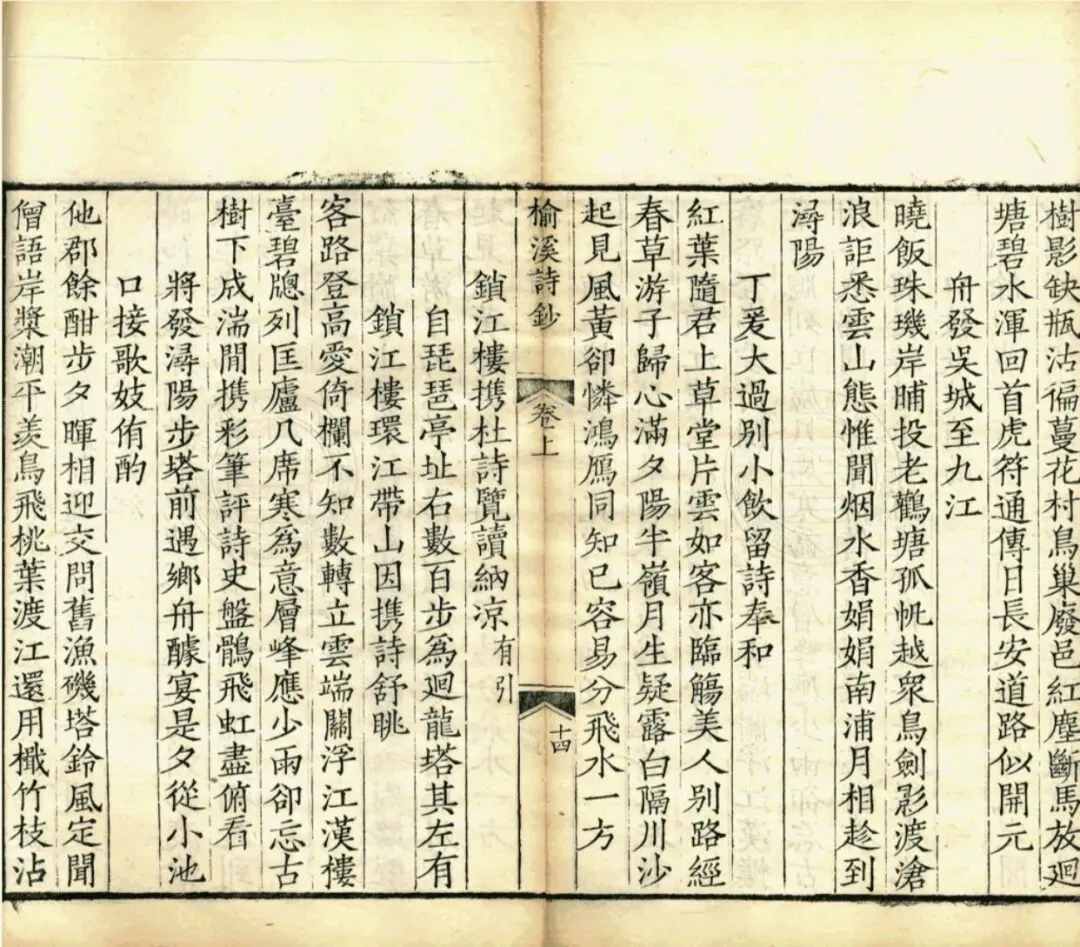 樹影缺瓶沽徧蔓花村鳥巢廢邑紅塵斷馬放迴
塘碧水渾回首虎符通傳日長安道路似開元
舟發吳城至九江
曉飯珠璣岸晡投老鸛塘孤帆越衆鳥劍影渡滄
浪詎悉雲山態惟聞烟水香娟娟南浦月相趁到
潯陽
丁爰大過別小飲留詩奉和
紅葉隨君上草堂片雲如客亦臨觴美人別路經
春草游子歸心滿夕陽牛嶺月生疑露白隔川沙
起見風黃卻憐鴻鴈同知已容易分飛水一方
榆溪詩鈔 卷上 十四
鎖江樓携杜詩覽讀納凉 有引
自琵琶亭址右數百步爲廻龍塔其左有
鎖江樓環江帶山因携詩舒眺
客路登高愛倚欄不知數轉立雲端關浮江漢樓
臺碧牕列匡廬八席寒爲意層峰應少雨卻忘古
樹下成湍閒携彩筆評詩史盤鶻飛虹盡俯看
將發潯陽步塔前遇鄉舟醵宴是夕從小池
口接歌妓侑酌
他郡餘酣步夕暉相迎交問舊漁磯塔鈴風定聞
僧語岸槳潮平羨鳥飛桃葉渡江還用檝竹枝沾